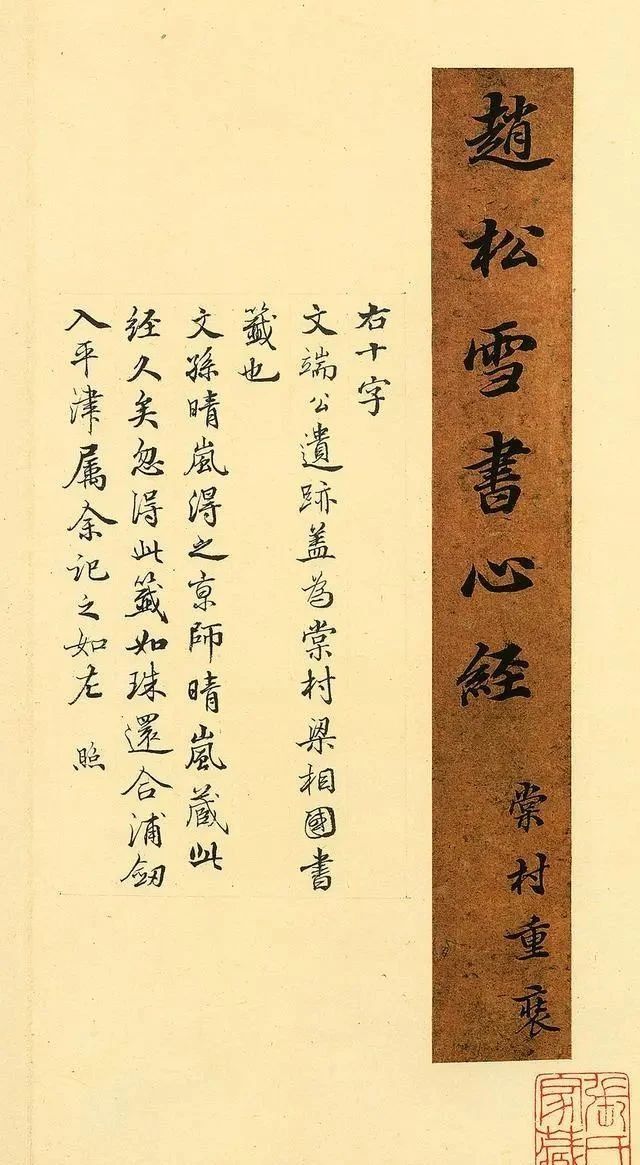 趙松雪書心経
棠村重裝
右十字
文端公遺跡盖為棠村梁相國書
籤也
文孫晴嵐得之京師晴嵐蔵此
経久矣忽得此籤如珠還合浦劔
入平津属余記之如左 照
張氏
家藏